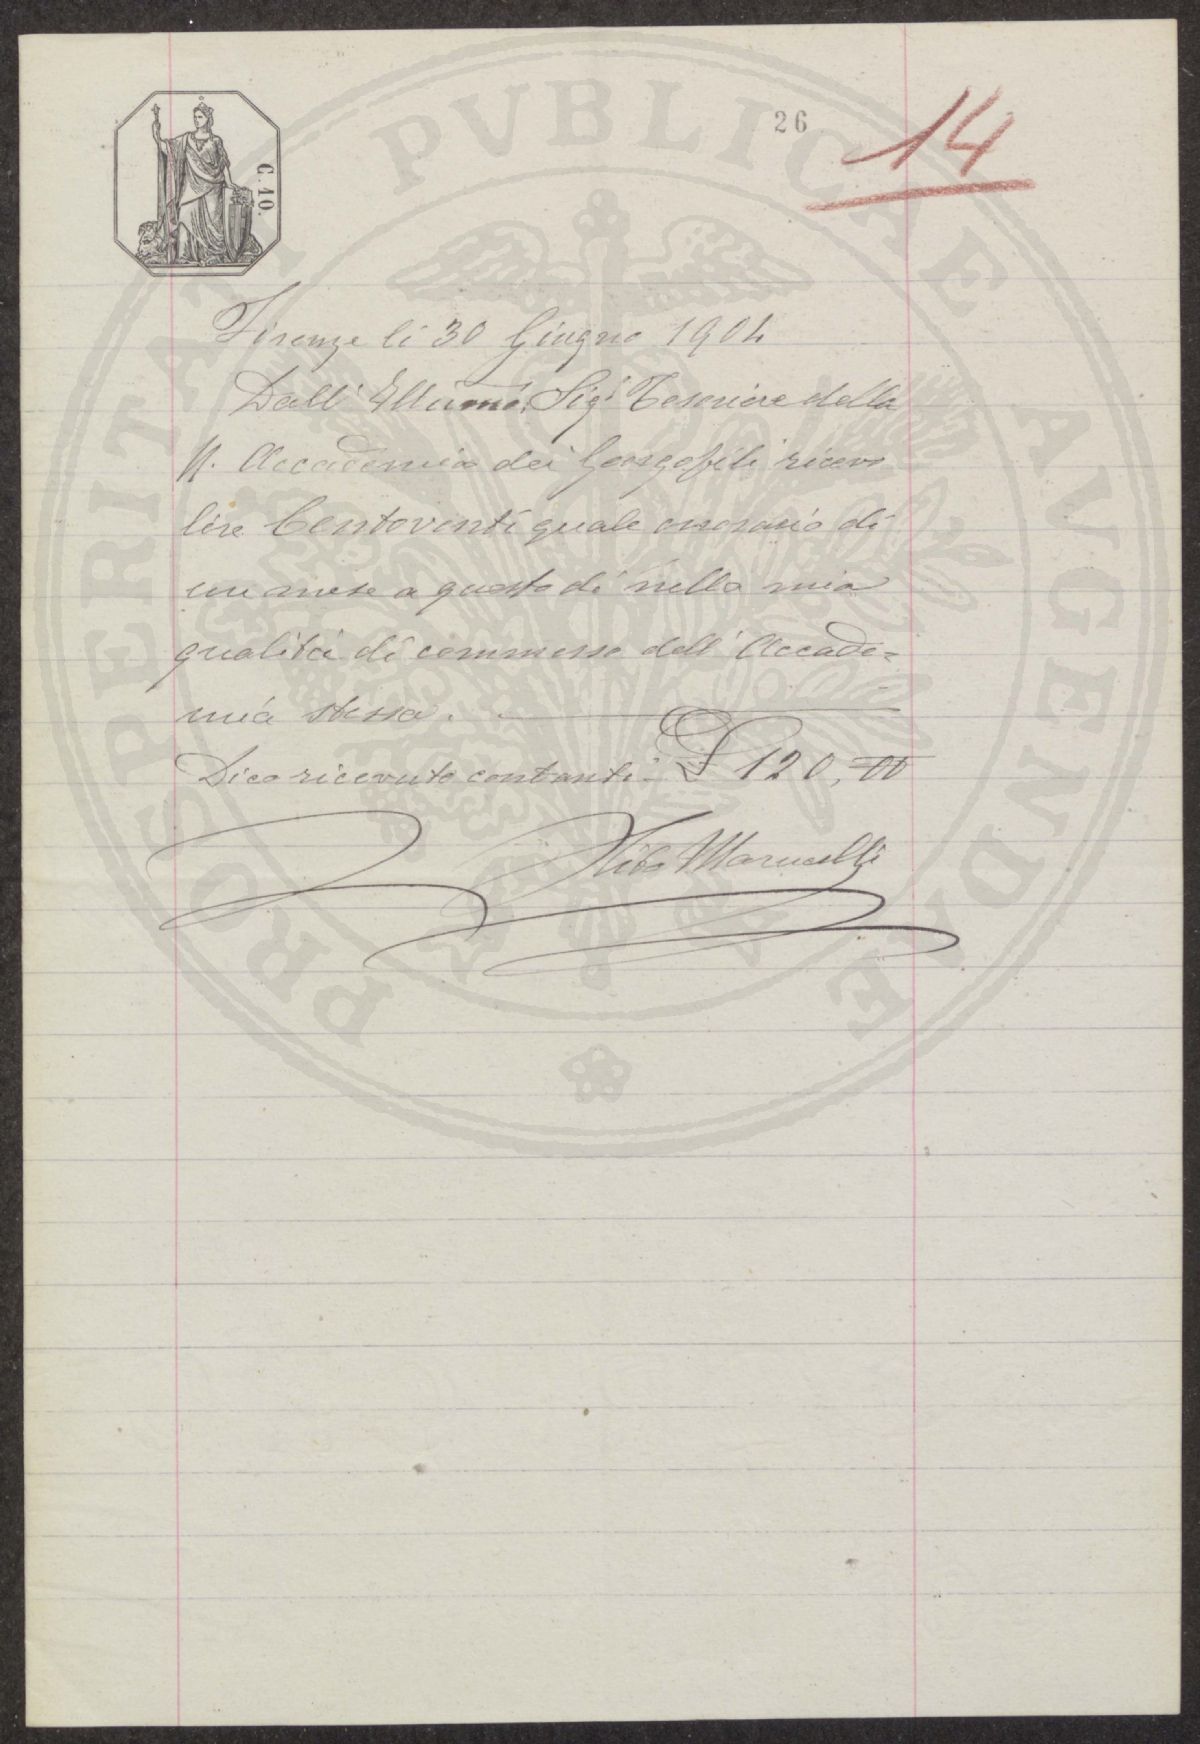 26
14
C. 10.
Firenze li 30 Giugno 1904
Dall' Illumo. Sigr Tesoriere della
R. Accademia dei Georgofili ricevo
lire Centoventi quale onorario di
un mese a questo dì nella mia
qualità di commesso dell' Accade=
mia stessa.
Dico ricevute contanti £ 120,00
Marucelli
PROSPERITATI PVBLICAE AVGENDAE